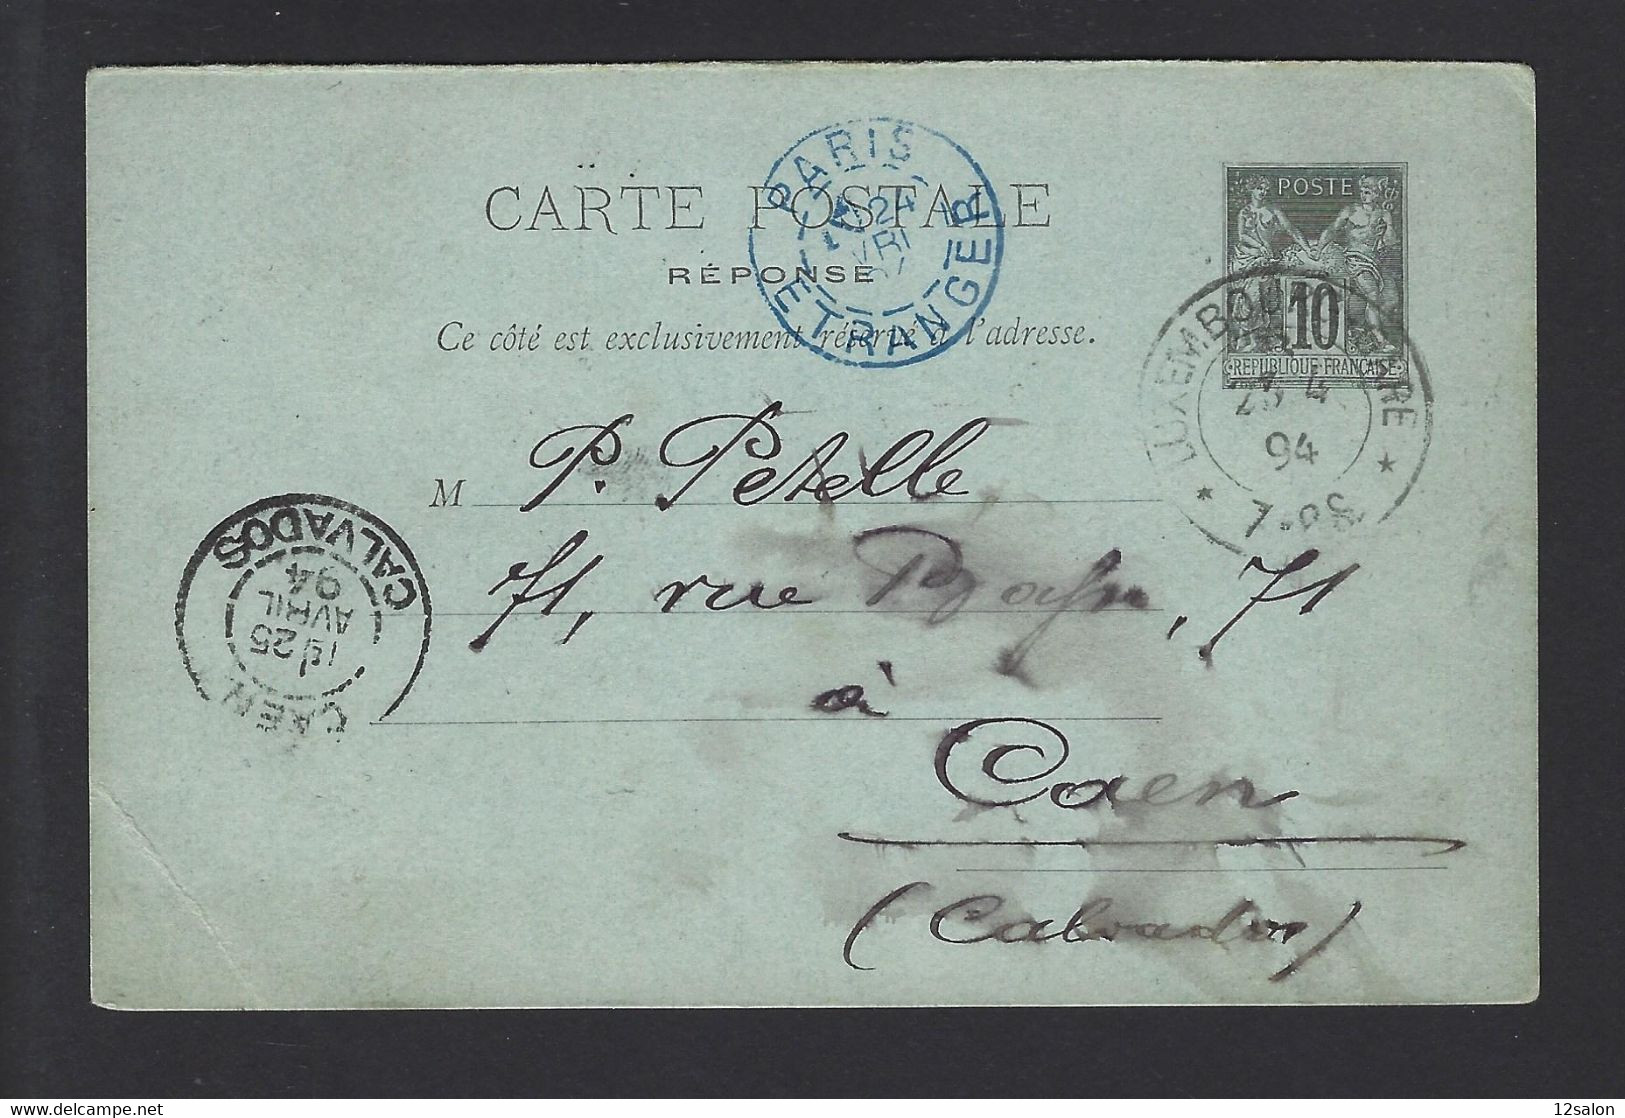 CARTE POSTALE
RÉPONSE
Ce côté est exclusivement réservé à l'adresse.
PARIS
24
AVRIL
ETRANGER
POSTE
10
REPUBLIQUE FRANÇAISE
LUXEMBOURG GARE
4
94
7-8S
M P. Petelle
71, rue , 71
à
Caen
(Calvados)
CAEN
1E
25
AVRIL
94
CALVADOS
delcampe.net
12salon